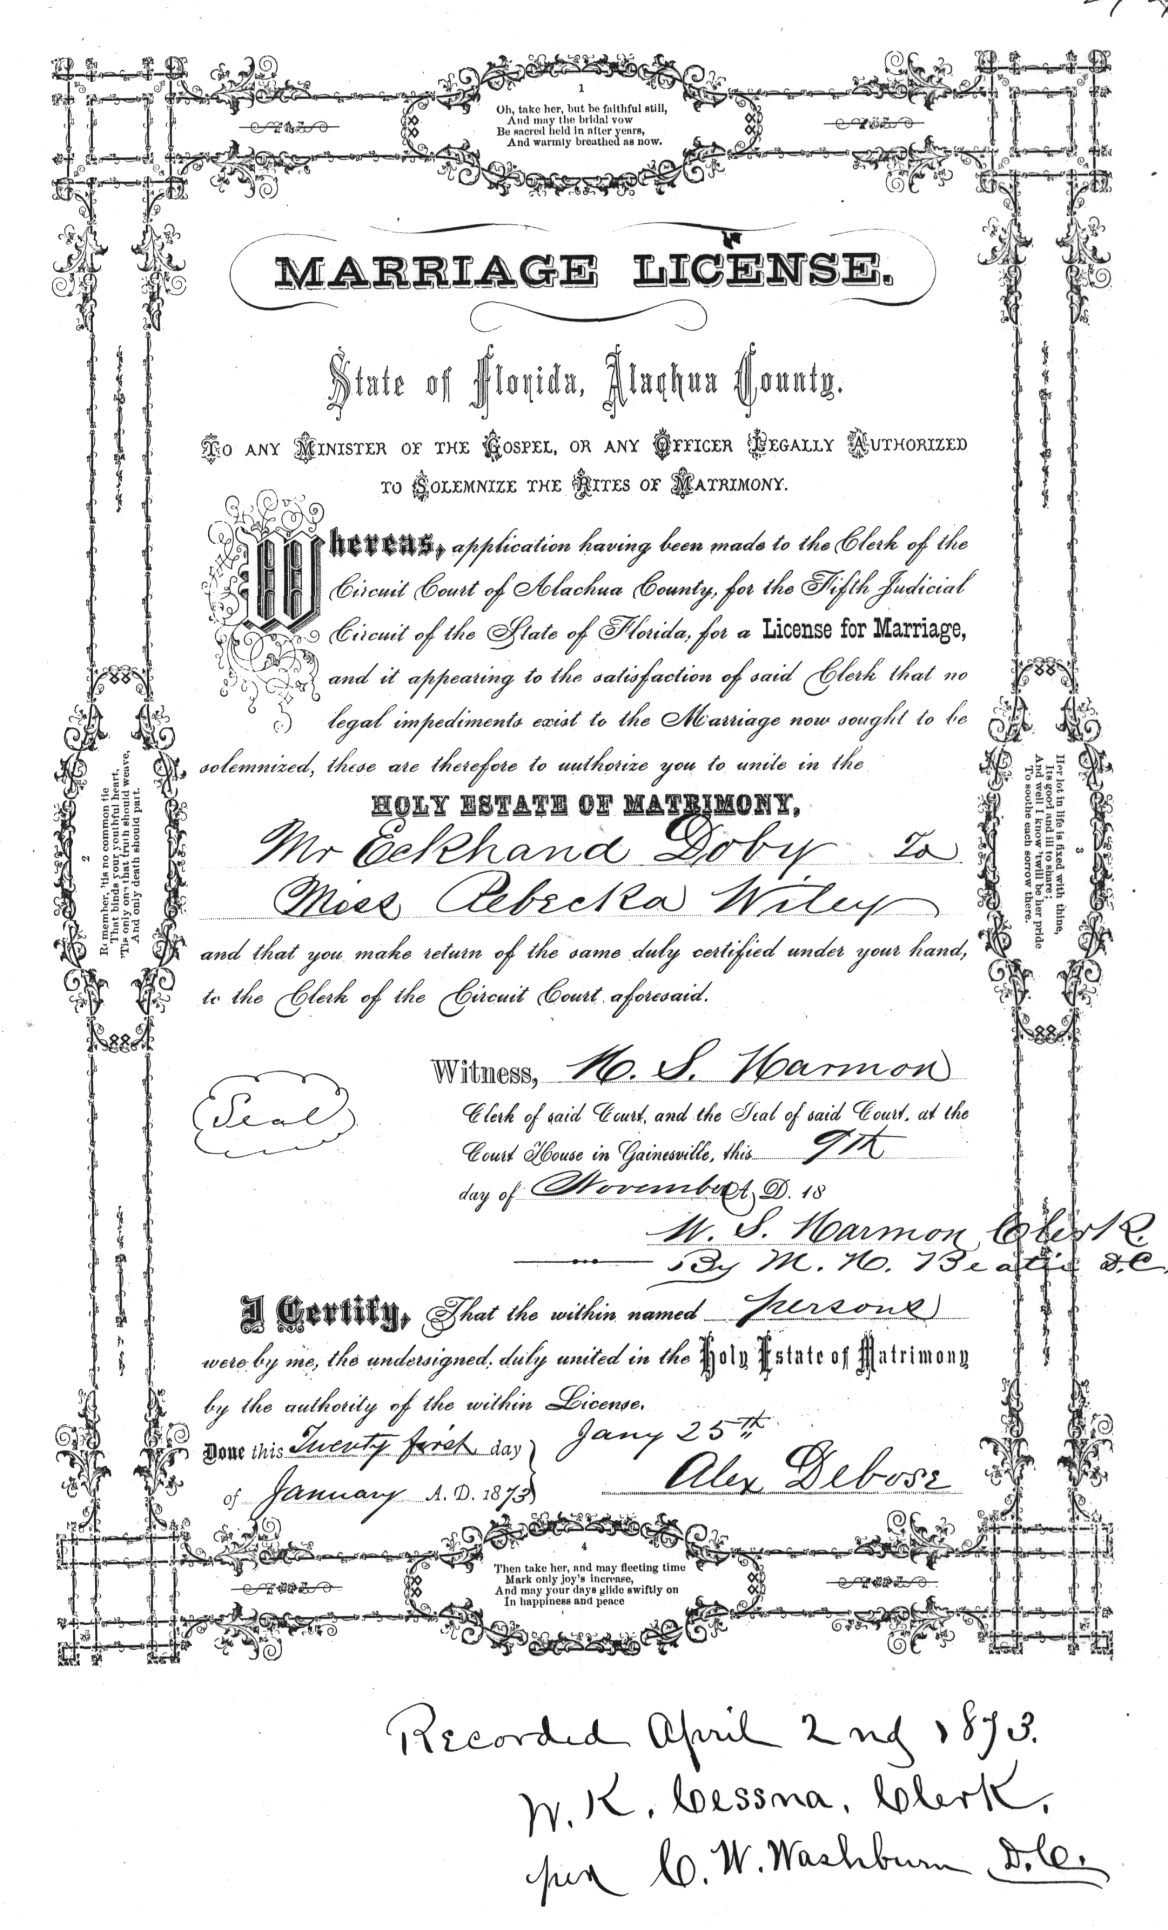 1
Oh, take her, but be faithful still,
And may the bridal vow
Be sacred held in after years,
And warmly breathed as now.
MARRIAGE LICENSE.
State of Florida, Alachua County.
TO ANY MINISTER OF THE GOSPEL, OR ANY OFFICER LEGALLY AUTHORIZED
TO SOLEMNIZE THE RITES OF MATRIMONY.
Whereas, application having been made to the Clerk of the
Circuit Court of Alachua County, for the Fifth Judicial
Circuit of the State of Florida, for a License for Marriage,
and it appearing to the satisfaction of said Clerk that no
legal impediments exist to the Marriage now sought to be
solemnized, these are therefore to authorize you to unite in the
HOLY ESTATE OF MATRIMONY,
Mr Eckhand Doby To
Miss Rebecka Wiley
and that you make return of the same duly certified under your hand,
to the Clerk of the Circuit Court aforesaid.
2
Remember, 'tis no common tie
That binds your youthful heart,
'Tis only one that truth should weave,
And only death should part.
3
Her lot in life is fixed with thine,
Its good and ill to share;
And well I know 'twill be her pride
To soothe each sorrow there.
Seal
Witness, W. S. Harmon
Clerk of said Court, and the Seal of said Court, at the
Court House in Gainesville, this 9th
day of November A. D. 18
W. S. Harmon Clerk.
By M. H. Beatie D.C.
I Certify, That the within named persons
were by me, the undersigned, duly united in the Holy Estate of Matrimony
by the authority of the within License.
Jany 25th
Done this Twenty first day
of January A. D. 1873
Alex Debose
4
Then take her, and may fleeting time
Mark only joy's increase,
And may your days glide swiftly on
In happiness and peace
Recorded April 2nd 1873.
W. K. Cessna, Clerk.
per C. W. Washburn D.C.